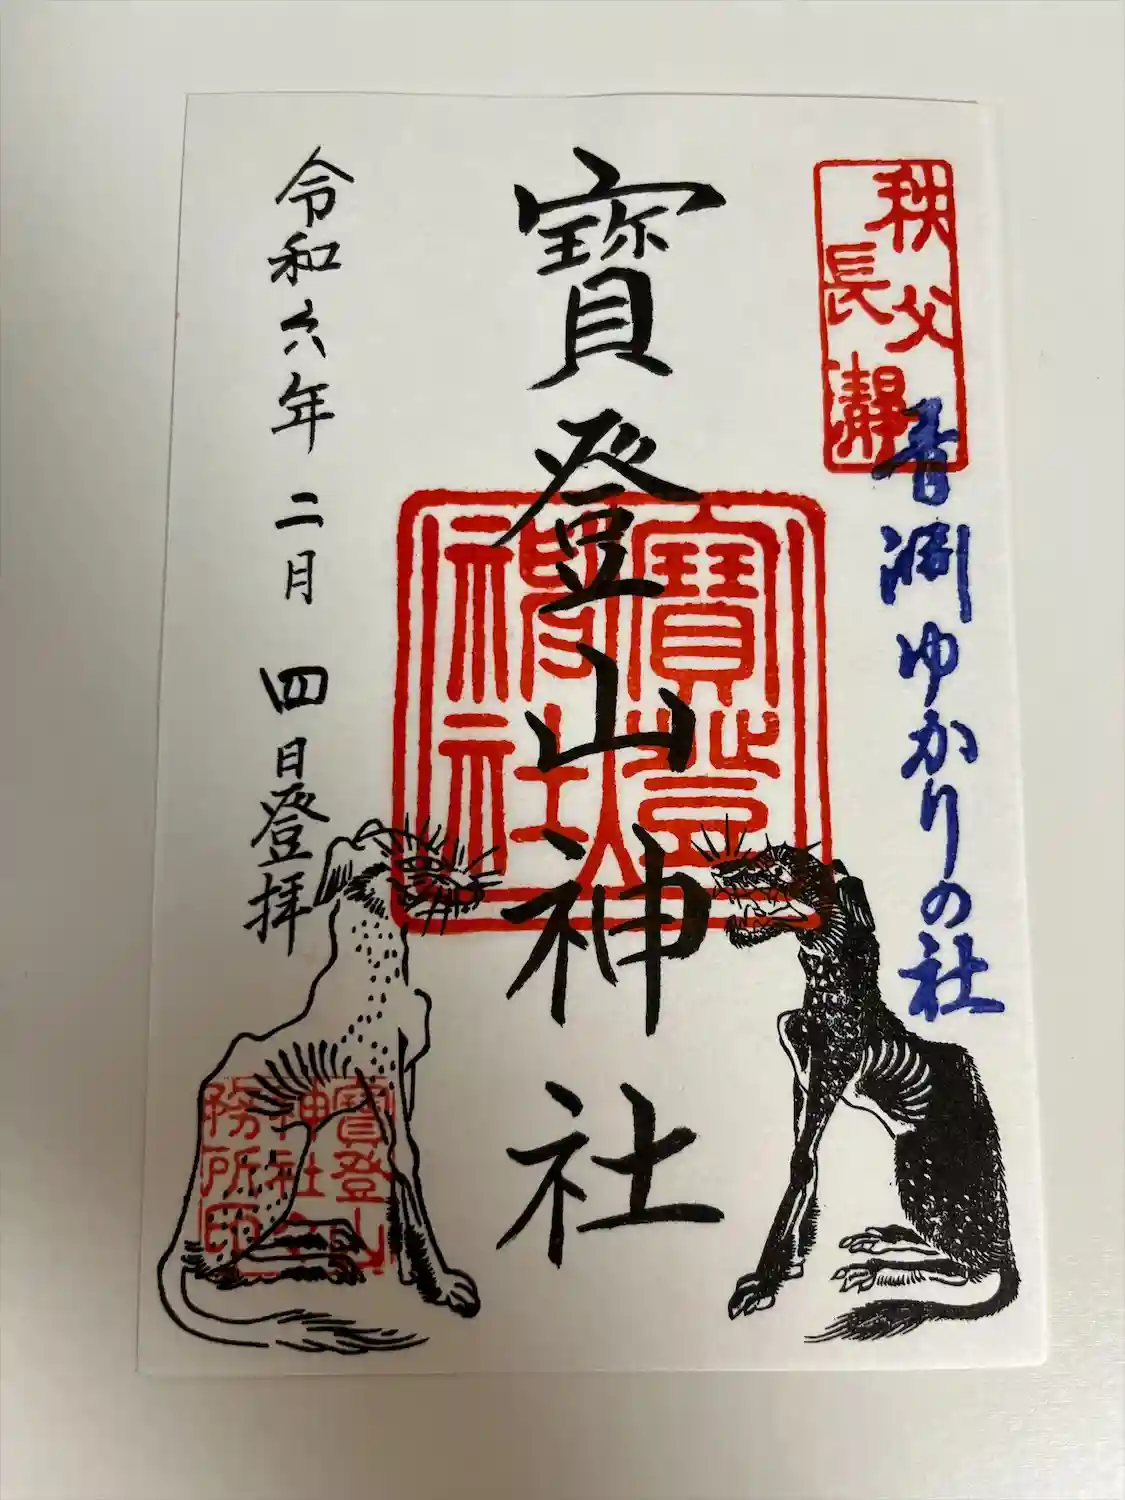 秩父
長瀞
青淵ゆかりの社
寶登山神社
寶登山
神社
令和六年二月四日登拝
寶登山
神社社
務所印